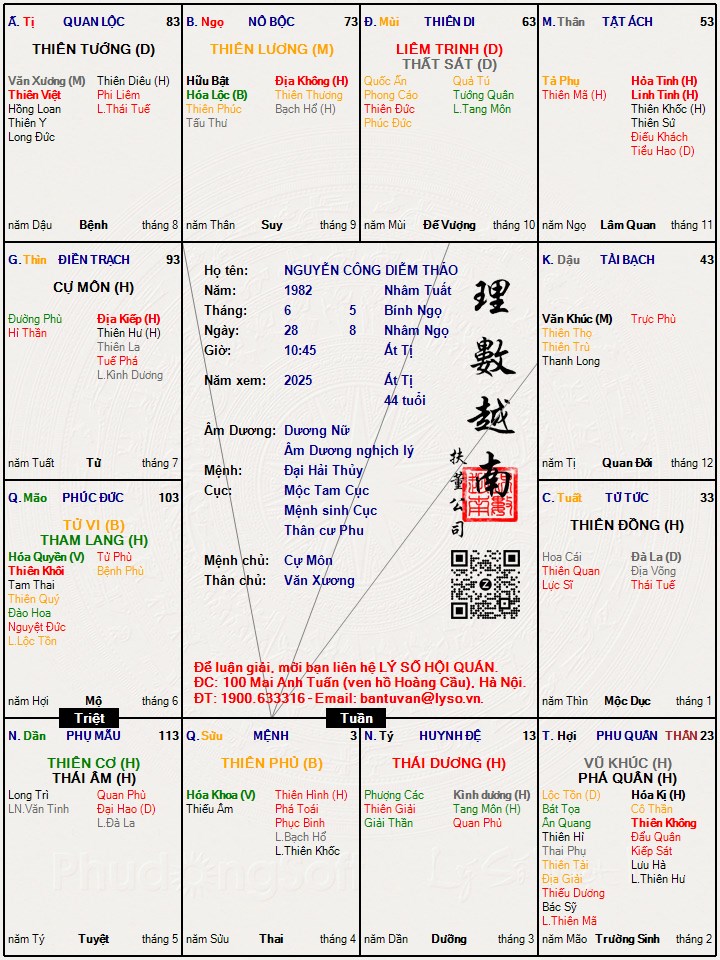 Ấ. Tị QUAN LỘC 83
THIÊN TƯỚNG (D)
Văn Xương (M) Thiên Diêu (H)
Thiên Việt Phi Liêm
Hồng Loan L.Thái Tuế
Thiên Y
Long Đức
năm Dậu Bệnh tháng 8
B. Ngọ NÔ BỘC 73
THIÊN LƯƠNG (M)
Hữu Bật Địa Không (H)
Hóa Lộc (B) Thiên Thương
Thiên Phúc Bạch Hổ (H)
Tấu Thư
năm Thân Suy tháng 9
Đ. Mùi THIÊN DI 63
LIÊM TRINH (D)
THẤT SÁT (D)
Quốc Ấn Quả Tú
Phong Cáo Tướng Quân
Thiên Đức L.Tang Môn
Phúc Đức
năm Mùi Đế Vượng tháng 10
M. Thân TẬT ÁCH 53
Tả Phụ Hỏa Tinh (H)
Thiên Mã (H) Linh Tinh (H)
Thiên Khốc (H)
Thiên Sứ
Điếu Khách
Tiểu Hao (D)
năm Ngọ Lâm Quan tháng 11
G. Thìn ĐIỀN TRẠCH 93
CỰ MÔN (H)
Đường Phù Địa Kiếp (H)
Hỉ Thần Thiên Hư (H)
Thiên La
Tuế Phá
L.Kình Dương
năm Tuất Tử tháng 7
Họ tên: NGUYỄN CÔNG DIỄM THẢO
Năm: 1982 Nhâm Tuất
Tháng: 6 5 Bính Ngọ
Ngày: 28 8 Nhâm Ngọ
Giờ: 10:45 Ất Tị
Năm xem: 2025 Ất Tị
44 tuổi
Âm Dương: Dương Nữ
Âm Dương nghịch lý
Mệnh: Đại Hải Thủy
Cục: Mộc Tam Cục
Mệnh sinh Cục
Thân cư Phu
Mệnh chủ: Cự Môn
Thân chủ: Văn Xương
理數越南
扶董公司
Để luận giải, mời bạn liên hệ LÝ SỐ HỘI QUÁN.
ĐC: 100 Mai Anh Tuấn (ven hồ Hoàng Cầu), Hà Nội.
ĐT: 1900.633316 - Email: bantuvan@lyso.vn.
K. Dậu TÀI BẠCH 43
Văn Khúc (M) Trực Phù
Thiên Thọ
Thiên Trù
Thanh Long
năm Tị Quan Đới tháng 12
Q. Mão PHÚC ĐỨC 103
TỬ VI (B)
THAM LANG (H)
Hóa Quyền (V) Tử Phù
Thiên Khôi Bệnh Phù
Tam Thai
Thiên Quý
Đào Hoa
Nguyệt Đức
L.Lộc Tồn
năm Hợi Mộ tháng 6
C. Tuất TỬ TỨC 33
THIÊN ĐỒNG (H)
Hoa Cái Đà La (D)
Thiên Quan Địa Võng
Lực Sĩ Thái Tuế
năm Thìn Mộc Dục tháng 1
Triệt
Tuần
N. Dần PHỤ MẪU 113
THIÊN CƠ (H)
THÁI ÂM (H)
Long Trì Quan Phù
LN.Văn Tinh Đại Hao (D)
L.Đà La
năm Tý Tuyệt tháng 5
Q. Sửu MỆNH 3
THIÊN PHỦ (B)
Hóa Khoa (V) Thiên Hình (H)
Thiếu Âm Phá Toái
Phục Binh
L.Bạch Hổ
L.Thiên Khốc
năm Sửu Thai tháng 4
N. Tý HUYNH ĐỆ 13
THÁI DƯƠNG (H)
Phượng Các Kình dương (H)
Thiên Giải Tang Môn (H)
Giải Thần Quan Phủ
năm Dần Dưỡng tháng 3
T. Hợi PHU QUÂN THÂN 23
VŨ KHÚC (H)
PHÁ QUÂN (H)
Lộc Tồn (D) Hóa Kị (H)
Bát Tọa Cô Thần
Ân Quang Thiên Không
Thiên Hỉ Đẩu Quân
Thai Phụ Kiếp Sát
Thiên Tài Lưu Hà
Địa Giải L.Thiên Hư
Thiếu Dương
Bác Sỹ
L.Thiên Mã
năm Mão Trường Sinh tháng 2